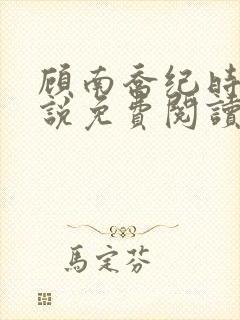 顾南喬纪時
說免費閱讀
馬定芬